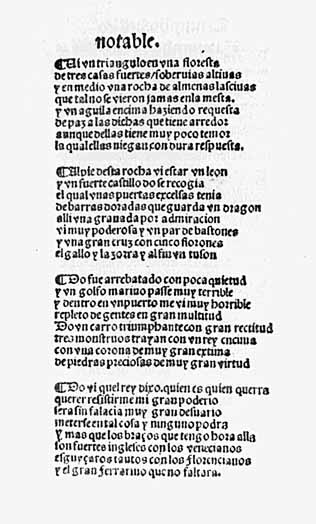 notable.
¶Ui vn triangulo en vna floresta
de tres casas fuertes/soberuias altiuas
y en medio vna rocha de almenas lasciuas
que tal no se vieron jamas en la mesta.
y vn aguila encima haziendo requesta
de paz a las dichas que tiene arredor
aunque dellas tiene muy poco temor
la qual ellas niegan con dura respuesta.
¶Al pie desta rocha vi estar vn leon
y vn fuerte castillo do se recogia
el qual vnas puertas excelsas tenia
de barras doradas que guarda vn dragon
alli vna granada por admiracion
vi muy poderosa y vn par de bastones
y vna gran cruz con cinco florones
el gallo y la zorra y al fin vn tuson
¶Do fue arrebatado con poca quietud
y vn golfo marino passe muy terrible
y dentro en vn puerto me vi muy horrible
repleto de gentes en gran multitud
Do vn carro triumphante con gran rectitud
tres monstruos trayan con vn rey encima
con vna corona de muy gran extima
de piedras preciosas de muy gran virtud
¶Do vi quel rey dixo. quien es quien querra
querer resistirme mi gran poderio
sera sin falacia muy gran desuario
meterse en tal cosa y ninguno podra
y mas que los braços que tengo hora alla
son fuertes ingleses con los venecianos
esguyçaros tantos con los florencianos
y el gran ferrarino que no faltara.